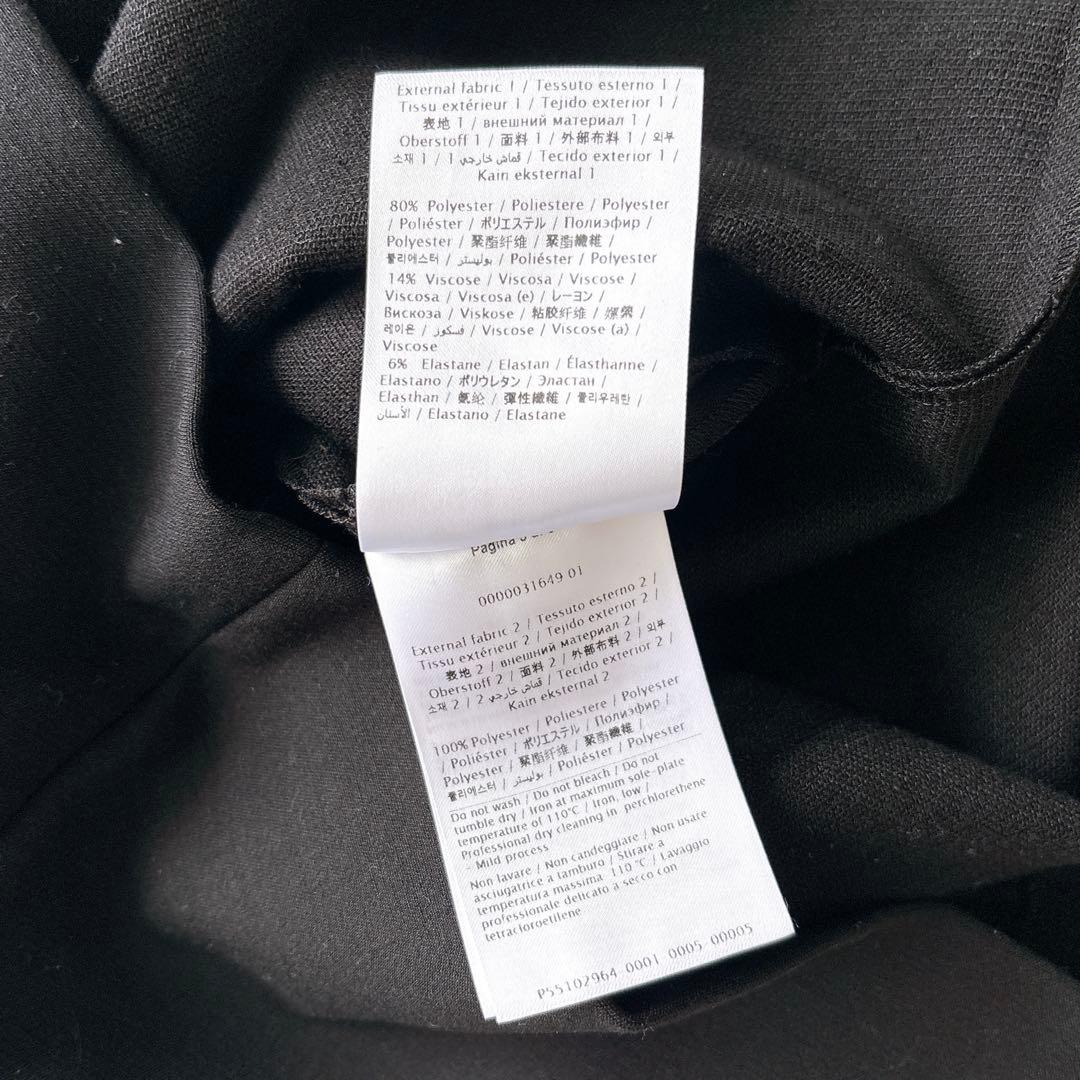 External fabric 1 / Tessuto esterno 1 /
Tissu extérieur 1 / Tejido exterior 1 /
表地 1 / внешний материал 1 /
Oberstoff 1 / 面料 1 / 外部布料 1 / 외부
소재 1 / 1 قماش خارجي / Tecido exterior 1 /
Kain eksternal 1
80% Polyester / Poliestere / Polyester
/ Poliéster / ポリエステル / Полиэфир /
Polyester / 聚酯纤维 / 聚酯纖維 /
폴리에스터 / بوليستر / Poliéster / Polyester
14% Viscose / Viscosa / Viscose /
Viscosa / Viscosa (e) / レーヨン /
Вискоза / Viskose / 粘胶纤维 / 嫘縈 /
레이온 / فسكوز / Viscose / Viscose (a) /
Viscose
6% Elastane / Elastan / Élasthanne /
Elastano / ポリウレタン / Эластан /
Elasthan / 氨纶 / 彈性纖維 / 폴리우레탄 /
الأستان / Elastano / Elastane
Pagina
0000031649 01
External fabric 2 / Tessuto esterno 2 /
Tissu extérieur 2 / Tejido exterior 2 /
表地 2 / внешний материал 2 /
Oberstoff 2 / 面料 2 / 外部布料 2 / 외부
소재 2 / 2 قماش خارجي / Tecido exterior 2 /
Kain eksternal 2
100% Polyester / Poliestere / Polyester
/ Poliéster / ポリエステル / Полиэфир /
Polyester / 聚酯纤维 / 聚酯纖維 /
폴리에스터 / بوليستر / Poliéster / Polyester
Do not wash / Do not bleach / Do not
tumble dry / Iron at maximum sole-plate
temperature of 110°C / Iron, low /
Professional dry cleaning in perchlorethene
- Mild process
Non lavare / Non candeggiare / Non usare
asciugatrice a tamburo / Stirare a
temperatura massima 110 °C / Lavaggio
professionale delicato a secco con
tetracloroetilene
P55102964 0001 0005 00005